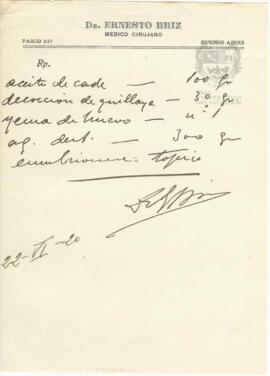 Dr. ERNESTO BRIZ
MEDICO CIRUJANO
PASCO 237 BUENOS AIRES
Rp.
aceite de cade — 100 gr
decoccion de quillaya — 30 gr
yema de huevo — nº 1
ag. dest. — 300 gr
topico
22-VI-20